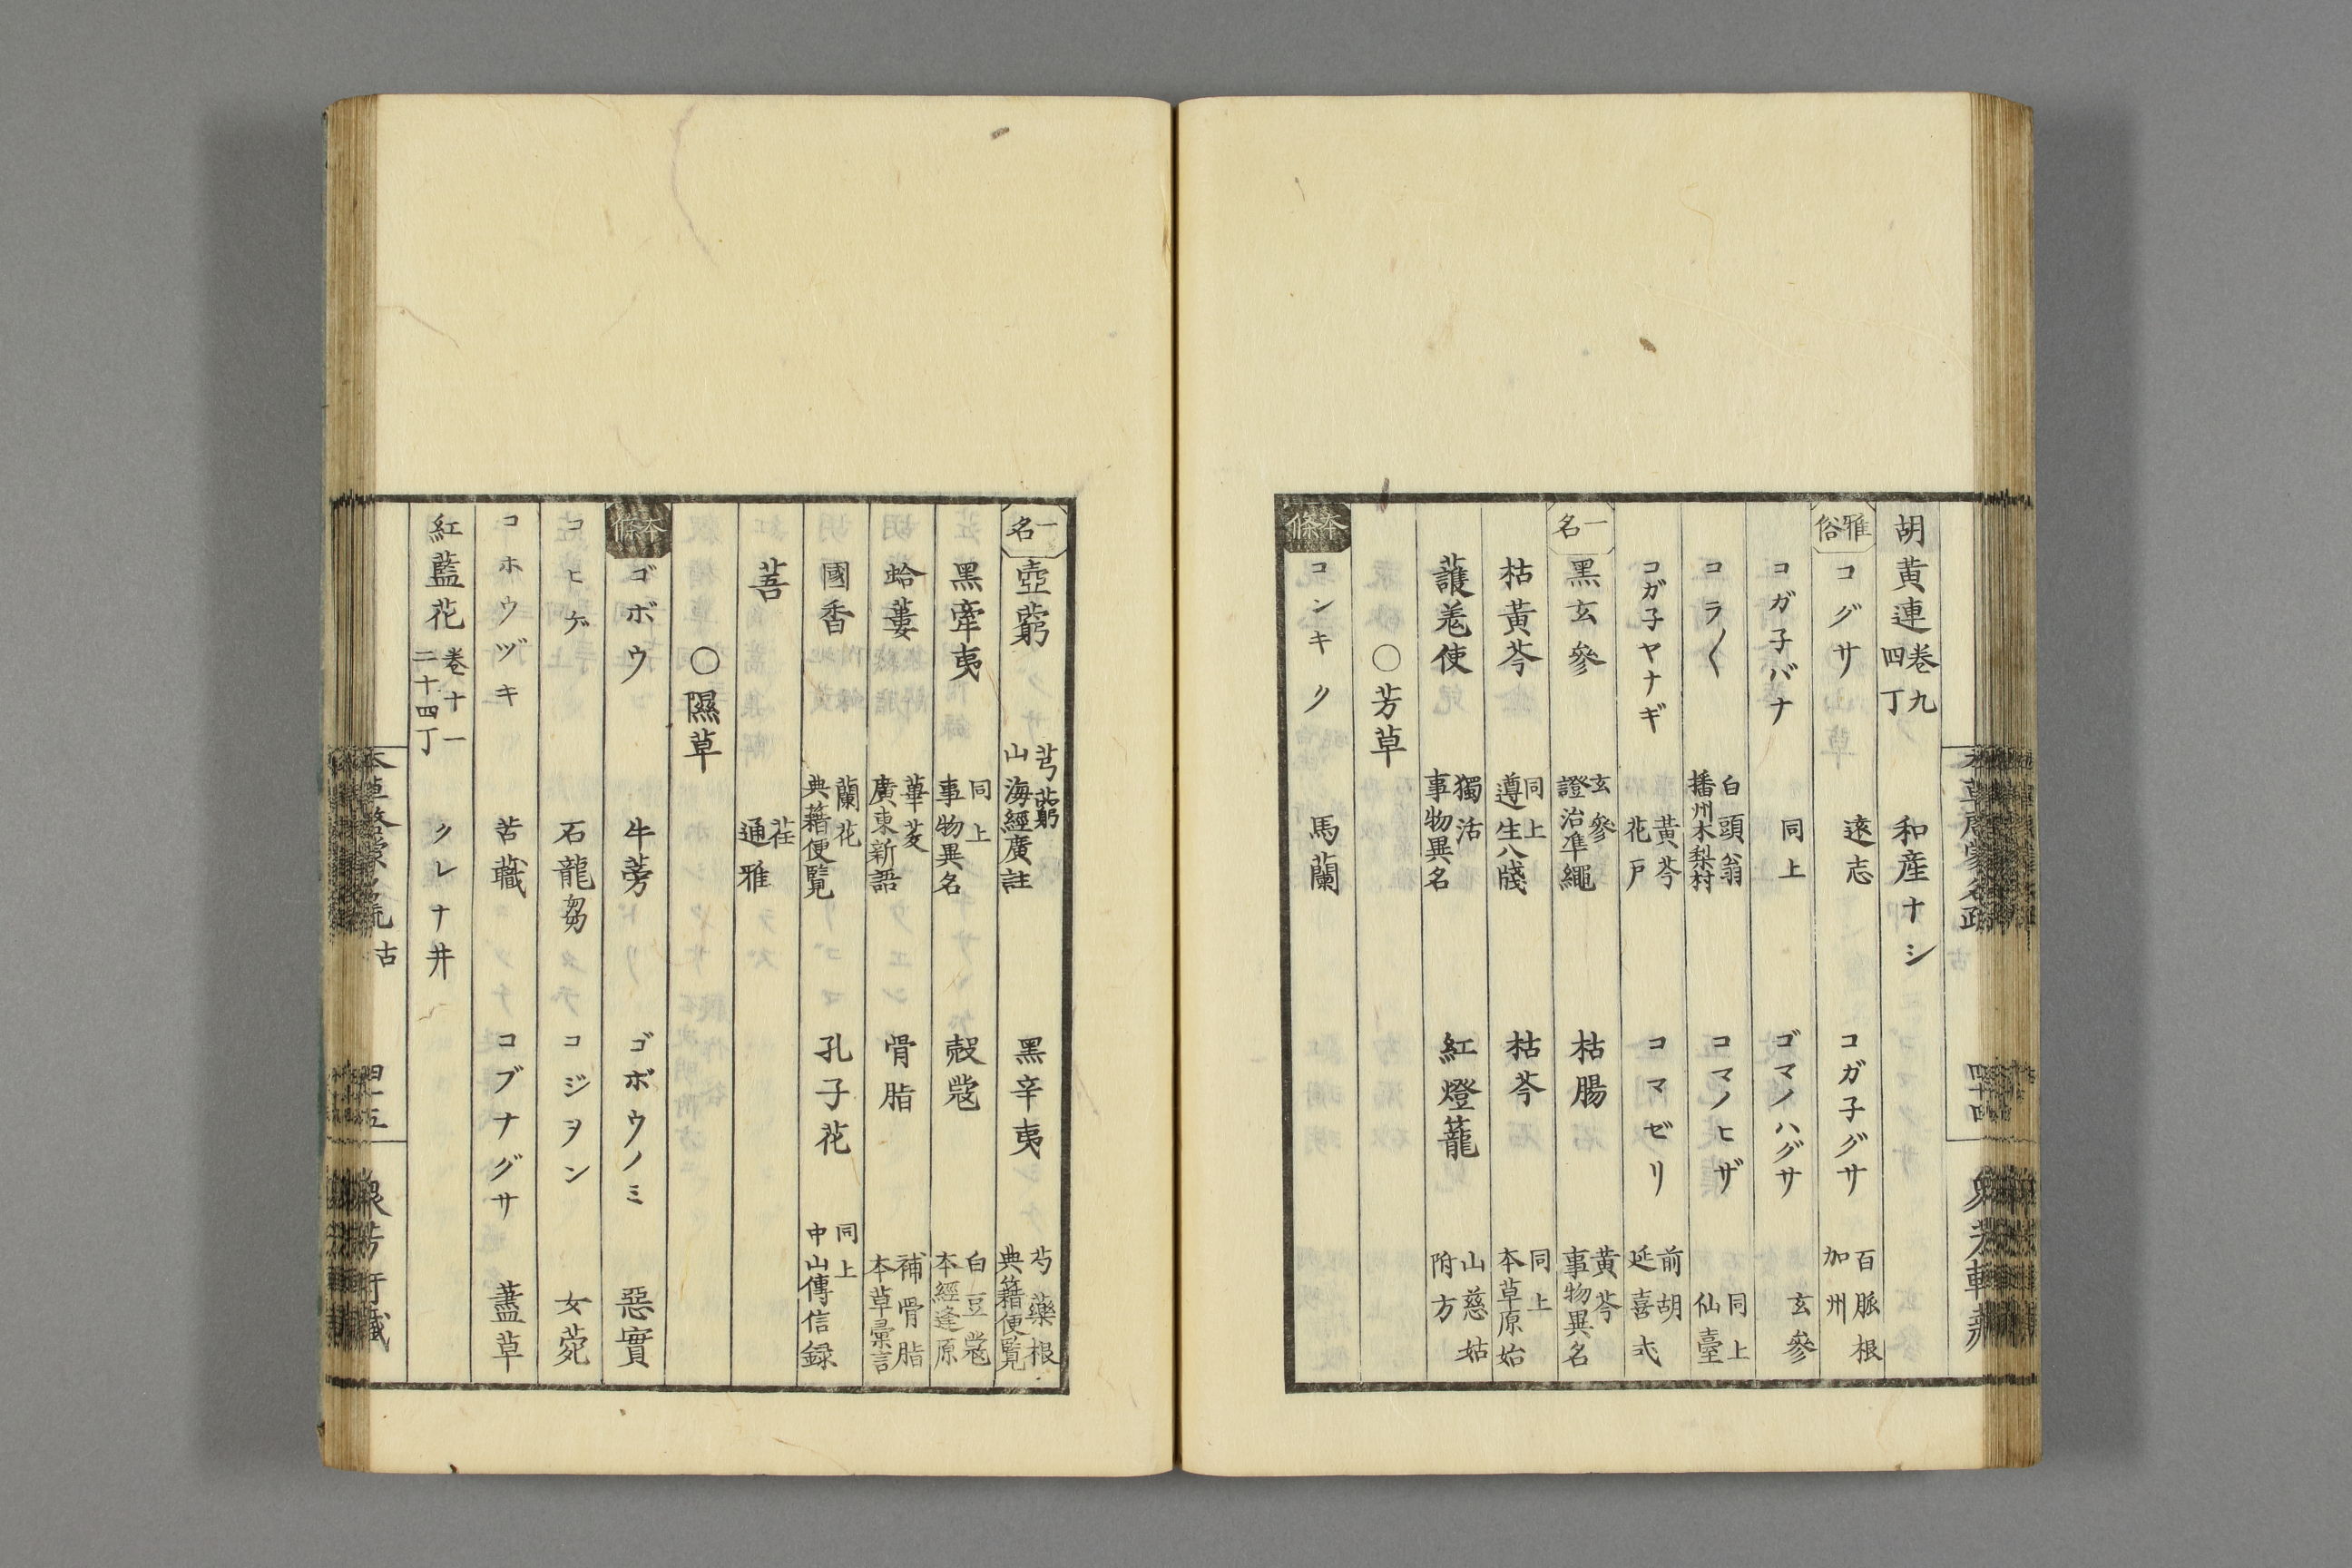 胡黄連 卷九四丁 和産ナシ
雅俗 コグサ 遠志 コガ子グサ 百脈根 加州
コガ子バナ 同上 ゴマノハグサ 玄參
コラ〱 白頭翁 播州木梨村 コマノヒザ 同上 仙臺
コガ子ヤナギ 黄芩 花戸 コマゼリ 前胡 延喜式
一名 黑玄參 玄參 證治準繩 枯腸 黄芩 事物異名
枯黄芩 同上 遵生八牋 枯芩 同上 本草原始
護羗使 獨活 事物異名 紅燈籠 山慈姑 附方
○芳草
本條 コンキク 馬蘭
一名 壺藭 芎藭 山海經廣註 黑辛夷 芍藥根 典籍便覽
黑牽夷 同上 事物異名 殼蔲 白豆蔲 本經逢原
蛤蔞 蓽茇 廣東新語 骨脂 補骨脂 本草彙言
國香 蘭花 典籍便覽 孔子花 同上 中山傳信録
萻 荏 通雅
○隰草
本條 ゴボウ 牛蒡 ゴボウノミ 惡實
コヒゲ 石龍芻 コジヲン 女菀
コホウヅキ 苦蘵 コブナグサ 藎草
紅藍花 卷十一 二十四丁 クレナ井
本草啓蒙名疏 古 四十五 衆芳軒藏